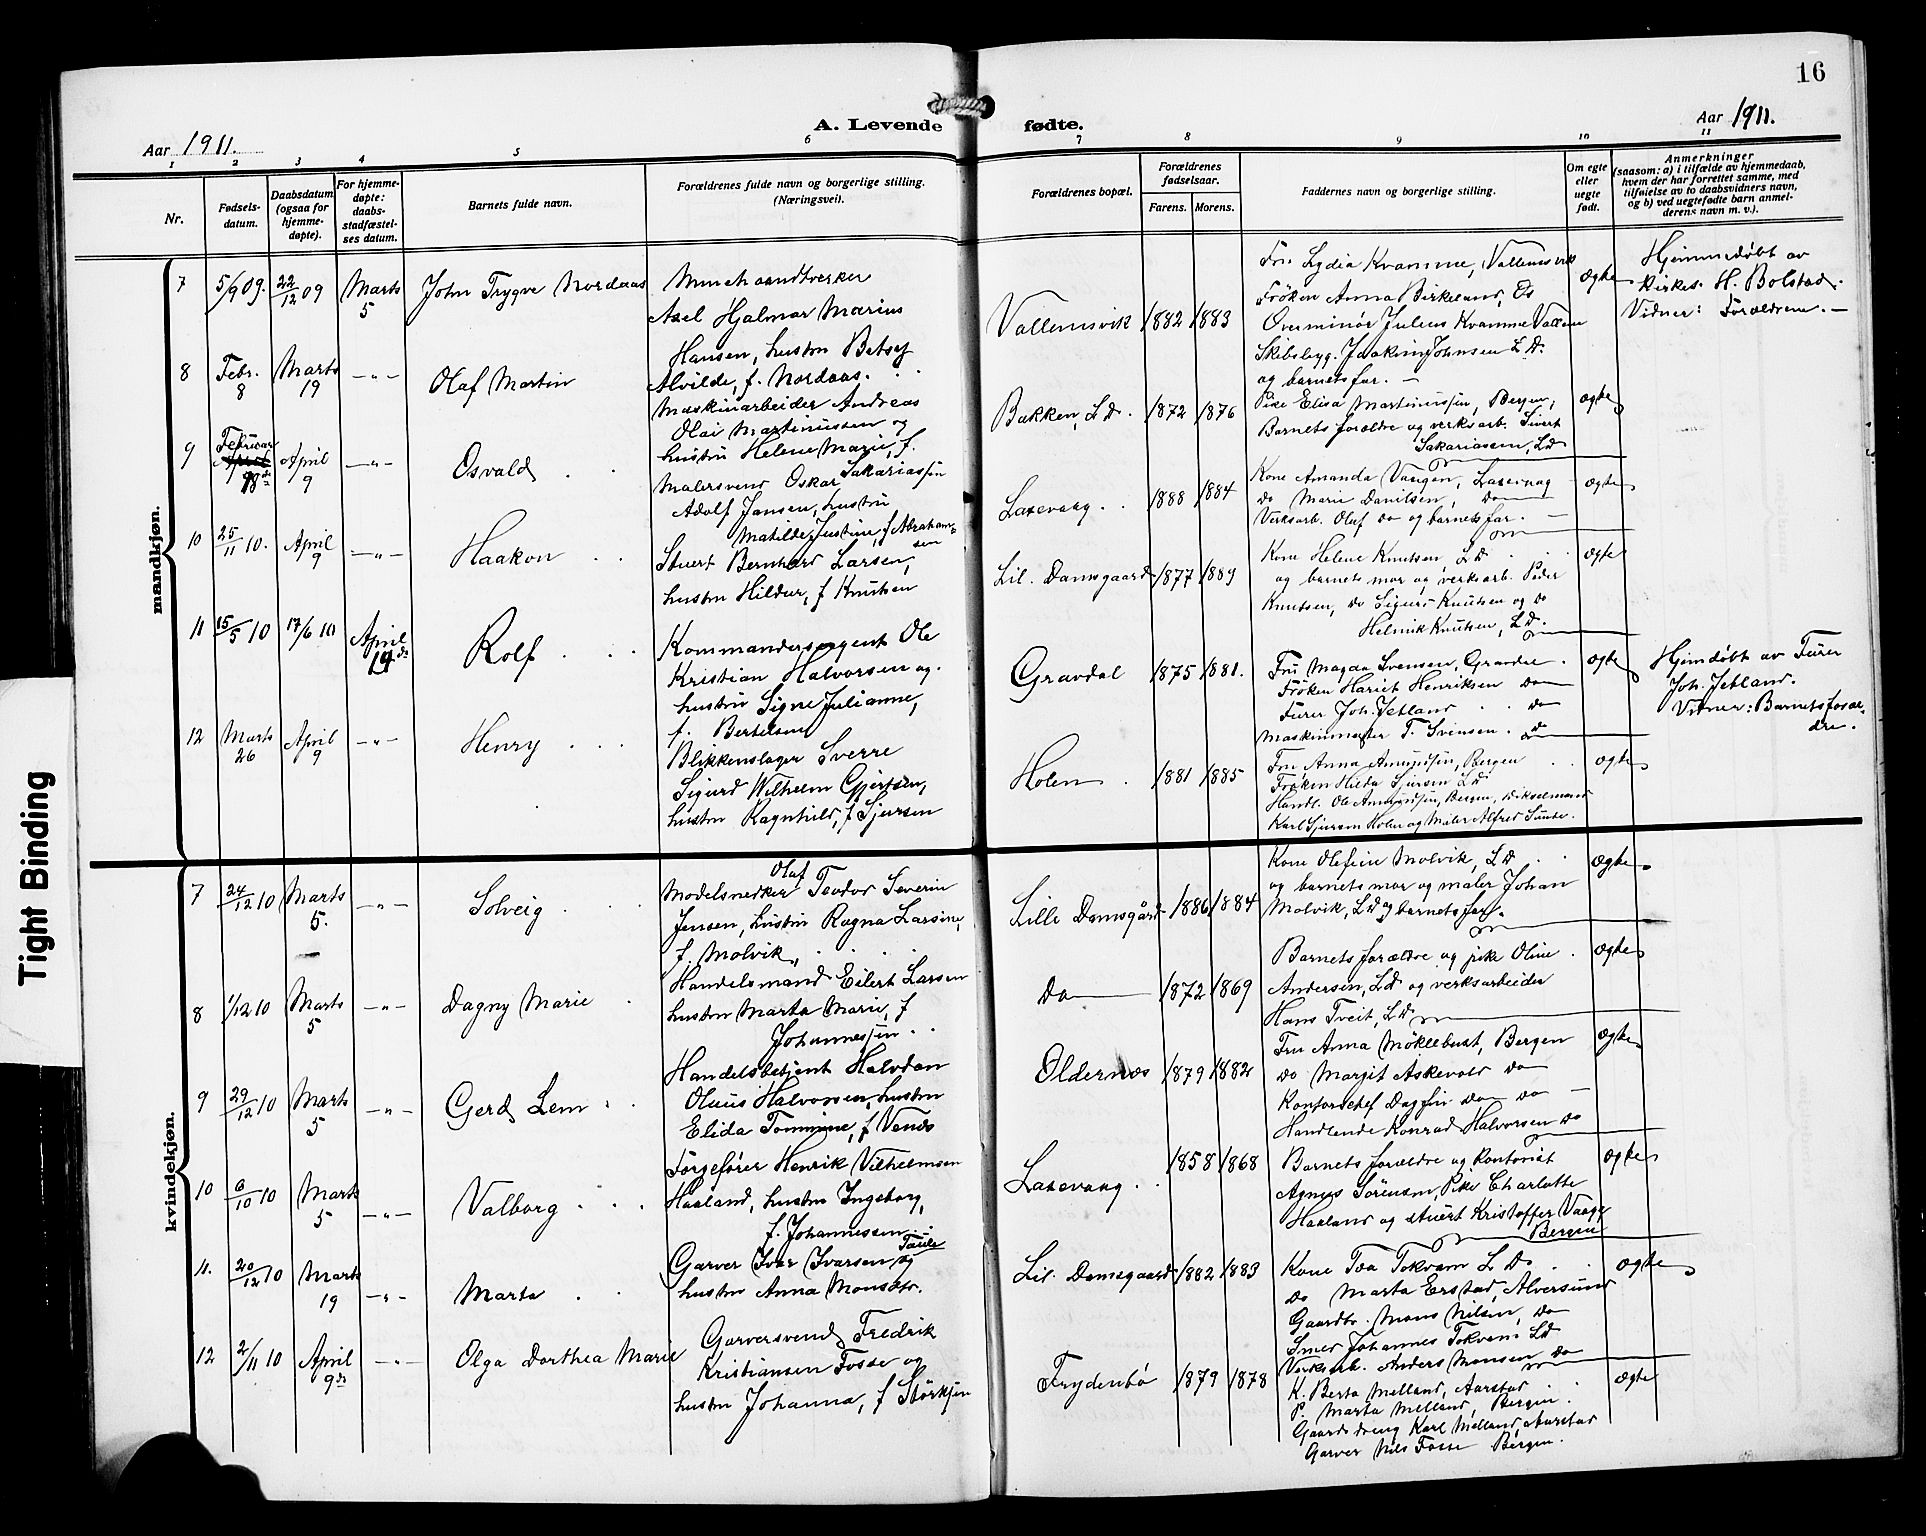 16
A. Levende fødte.
Aar 1911.
Aar 1911.
1 2 3 4 5 6 7 8 9 10 11
Nr.
Fødsels-
datum.
Daabsdatum
(ogsaa for
hjemme-
døpte).
For hjemme-
døpte:
daabs-
stadfæstel-
ses datum.
Barnets fulde navn.
Forældrenes fulde navn og borgerlige stilling.
(Næringsvei).
Forældrenes bopæl.
Forældrenes
fødselsaar.
Farens. Morens.
Faddernes navn og borgerlige stilling.
Om egte
eller
uegte
født.
Anmerkninger
(saasom: a) i tilfælde av hjemmedaab,
hvem der har forrettet samme, med
tilføielse av to daabsvidners navn,
og b) ved uegtefødte barn anmel-
derens navn m. v.).
mandkjøn.
7 5/9 09. 22/12 09 Marts 5 John Trygve Nordaas
Axel Hjalmar Marius
Hansen, hustru Betsy
Alvilde, f. Nordaas.
Vallemsvik 1882 1883
Fru Lydia Kvamme, Vallemsvik
Frøken Anna Birkeland, Os
Overminør Julius Kvamme Vallem
Skibsbyg. Joakim Johnsen L.D.
og barnets far. —
ægte
Hjemmedøbt av
Kirkes. H. Bolstad.
Vidner: Forældrene. —
8 Febr. 8 Marts 19 —"— Olaf Martin
Maskinarbeider Andreas
Olai Martinussen og
hustru Helene Marie, f.
Sakariassen
Bakken, L.D. 1872 1876
Pike Elisa Martinussen, Bergen,
Barnets forældre og verksarb. Sivert
Sakariassen, L.D.
ægte
9 Februar 18de April 9 —"— Osvald
Malersvend Oskar
Adolf Jansen, hustru
Matilde Justine, f Abraham-
sen
Laxevaag 1888 1884
Kone Amanda Vaagen, Laxevaag
do Marie Danilsen, do
Verksarb. Oluf do og barnets far. —
ægte
10 25/11 10. April 9 —"— Haakon
Stuert Bernhard Larsen,
hustru Hildur, f Knutsen
Lil. Damsgaard 1877 1889
Kone Helene Knutsen, L.D.
og barnets mor og verksarb. Peder
Knutsen, do Sigurd Knutsen og do
Helmik Knutsen, L.D.
ægte
11 15/5 10 17/6 10 April 14de Rolf
Kommandersergent Ole
Kristian Halvorsen og
hustru Signe Julianne,
f. Bertelsen
Gravdal 1875 1881.
Fru Magda Svensen, Gravdal
Frøken Hariet Henriksen do
Furer Joh. Jetland do
Maskinmester T. Svensen. do
ægte
Hjemdøbt av Furer
Joh. Jetland.
Vitner: Barnets foræl-
dre.
12 Marts 26 April 9 —"— Henry
Blikkenslager Sverre
Sigurd Wilhelm Gjertsen,
hustru Ragnhild, f Sjursen
Holen 1881 1885
Fru Anna Amundsen, Bergen
Frøken Hilda Sjursen L.D.
Handl. Ole Amundsen, Bergen,
Karl Sjursen Holen og Maler Alfred
ægte
kvindekjøn.
7 24/12 10 Marts 5. —"— Solveig
Modelsnedker Olaf Teodor Severin
Jensen, hustru Ragna Larsine,
f. Molvik
Lille Damsgård 1886 1884
Kone Olefine Molvik, L.D.
og barnets mor og maler Johan
Molvik, L.D. og barnets far.
ægte
8 1/12 10 Marts 5 —"— Dagny Marie
Handelsmand Eilert Larsen
hustru Marta Marie, f
Johannessen
Do 1872 1869
Barnets forældre og pike Oline
Andersen, L.D. og verksarbeider
Hans Tveit, L.D.
ægte
9 29/12 10 Marts 5 —"— Gerd Lem
Handelsbetjent Halvdan
Olaus Halvorsen, hustru
Elida Tomine, f
Oldernes 1879 1882
Fru Anna Møklebust, Bergen
do Margit Askevold do
Kontorchef Dagfin do do
Handlende Konrad Halvorsen do
ægte
10 6/10 10 Marts 5 —"— Valborg
Førgefører Henrik Vilhelmsen
Haaland, hustru Ingeborg,
f. Johannessen
Laxevaag 1858 1868
Barnets forældre og Kontorist
Agnus Sørensen, Pike Charlotte
Haaland og stuert Kristoffer Vaage
Bergen
ægte
11. 20/12 10 Marts 19 —"— Marta
Garver Ivar Ivarsen Taule og
hustru Anna Monsdtr.
Lil. Damsgaard 1882 1883
Kone Tea Tokvam L.D.
do Marta Erstad, Alversund
Gaardbr. Mons Nilsen, do
Smed Johannes Tokvam L.D.
Verksarb. Anders Monsen do
ægte
12 2/11 10 April 9de —"— Olga Dorthea Marie
Garversvend Fredrik
Kristiansen Fosse og
hustru Johanna, f Størksen
Frydenbø 1879 1878
K. Berta Melland, Aarstad
P. Marta Melland, Bergen
Gaardsdreng Karl Melland Aarstad
Garver Nils Fosse Bergen.
ægte
Tight Binding